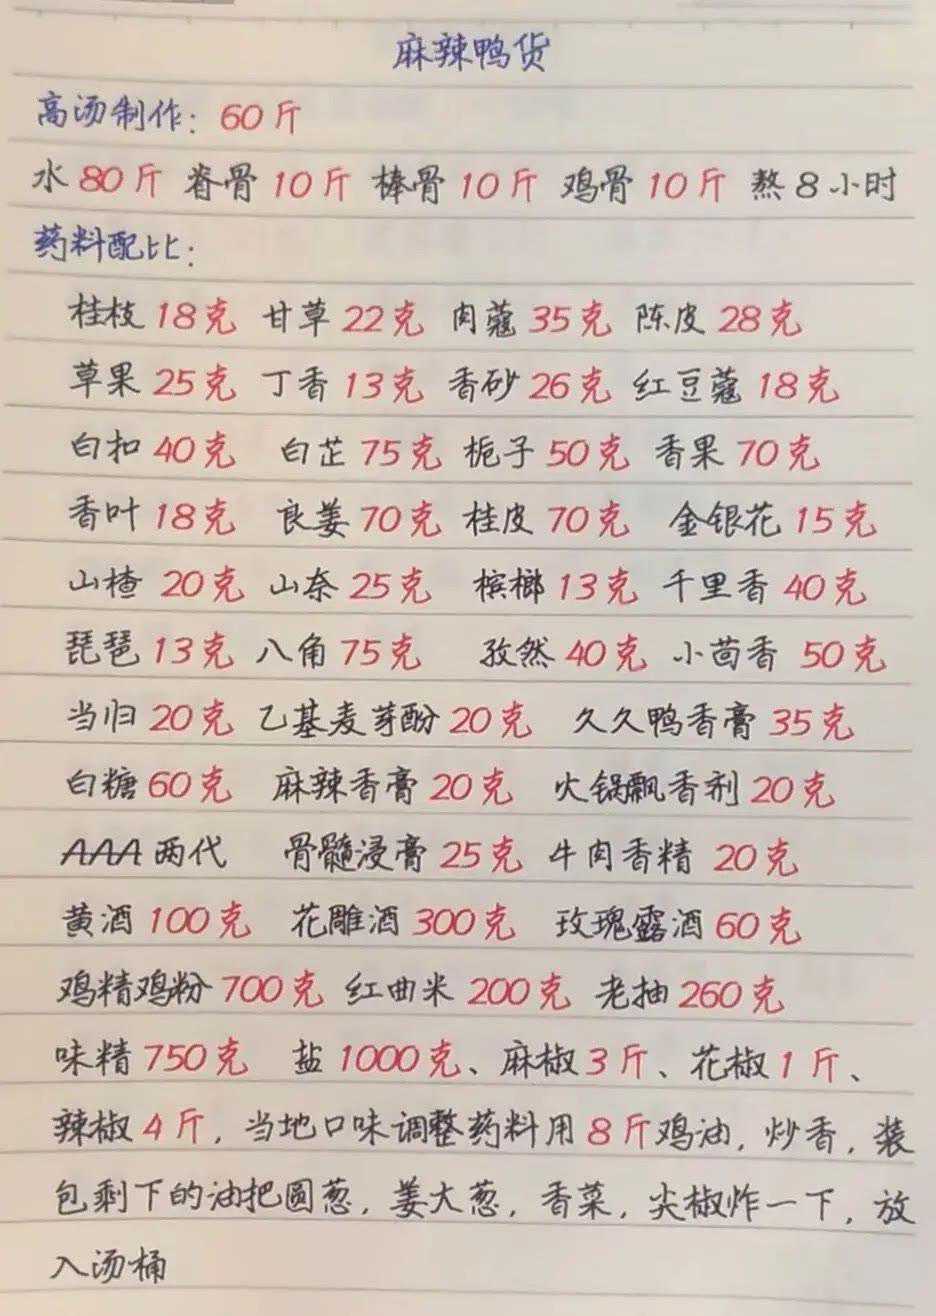 麻辣鸭货
高汤制作：60斤
水80斤 脊骨10斤 棒骨10斤 鸡骨10斤 熬8小时
药料配比：
桂枝18克 甘草22克 肉蔻35克 陈皮28克
草果25克 丁香13克 香砂26克 红豆蔻18克
白扣40克 白芷75克 栀子50克 香果70克
香叶18克 良姜70克 桂皮70克 金银花15克
山楂20克 山奈25克 槟榔13克 千里香40克
琵琶13克 八角75克 孜然40克 小茴香50克
当归20克 乙基麦芽酚20克 久久鸭香膏35克
白糖60克 麻辣香膏20克 火锅飘香剂20克
AAA两代 骨髓浸膏25克 牛肉香精20克
黄酒100克 花雕酒300克 玫瑰露酒60克
鸡精鸡粉700克 红曲米200克 老抽260克
味精750克 盐1000克、麻椒3斤、花椒1斤、
辣椒4斤，当地口味调整药料用8斤鸡油，炒香，装
包剩下的油把圆葱，姜大葱，香菜，尖椒炸一下，放
入汤桶